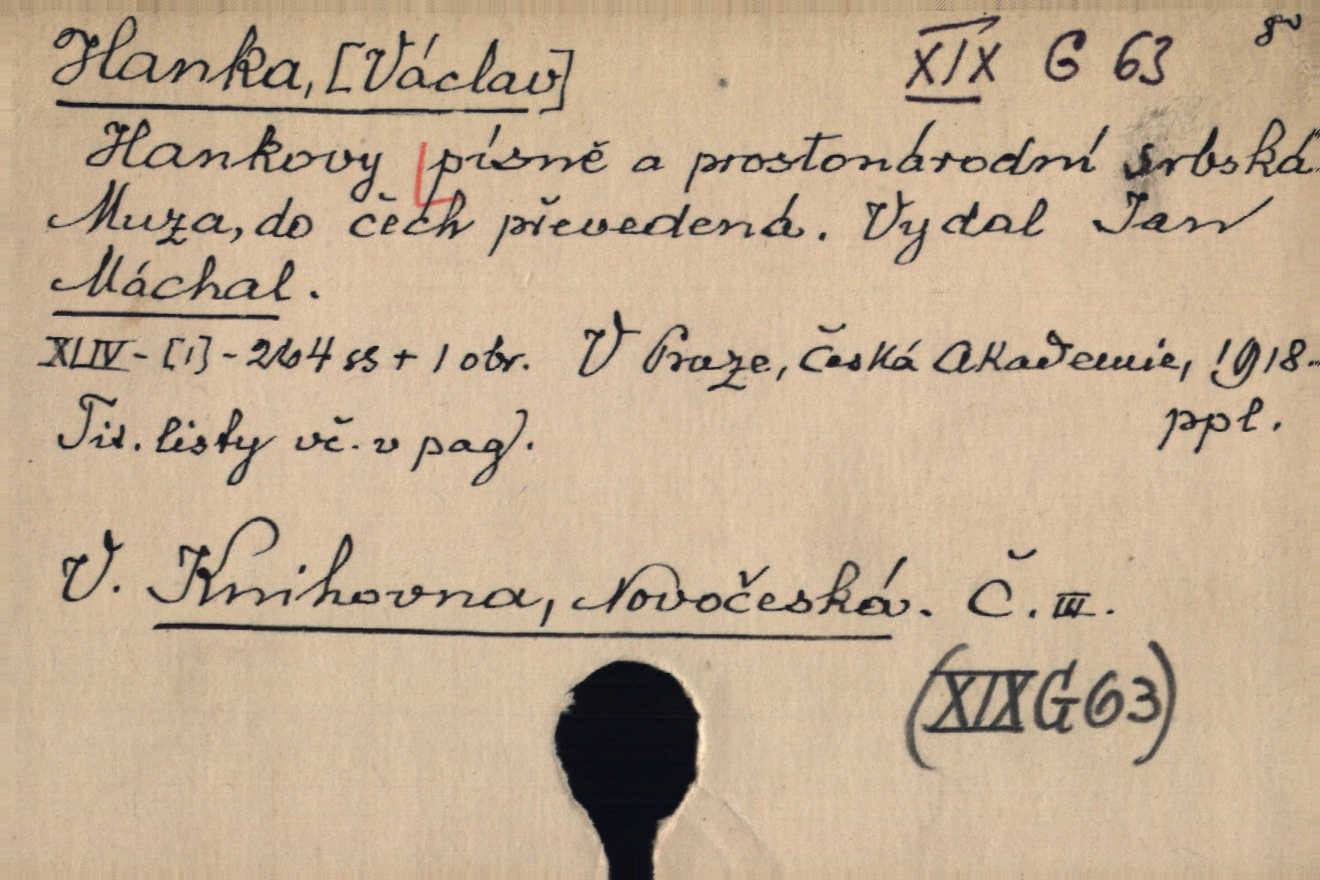 Hanka, [Václav] XIX G 63 8°
Hankovy písně a prostonárodní srbská
Muza, do čech převedená. Vydal Jan
Máchal.
XLIV - [1] - 264 ss + 1 obr. V Praze, Česká Akademie, 1918.
Tit. listy vč. v pag). ppl.
V. Knihovna, Novočeská. Č. III.
(XIX G 63)